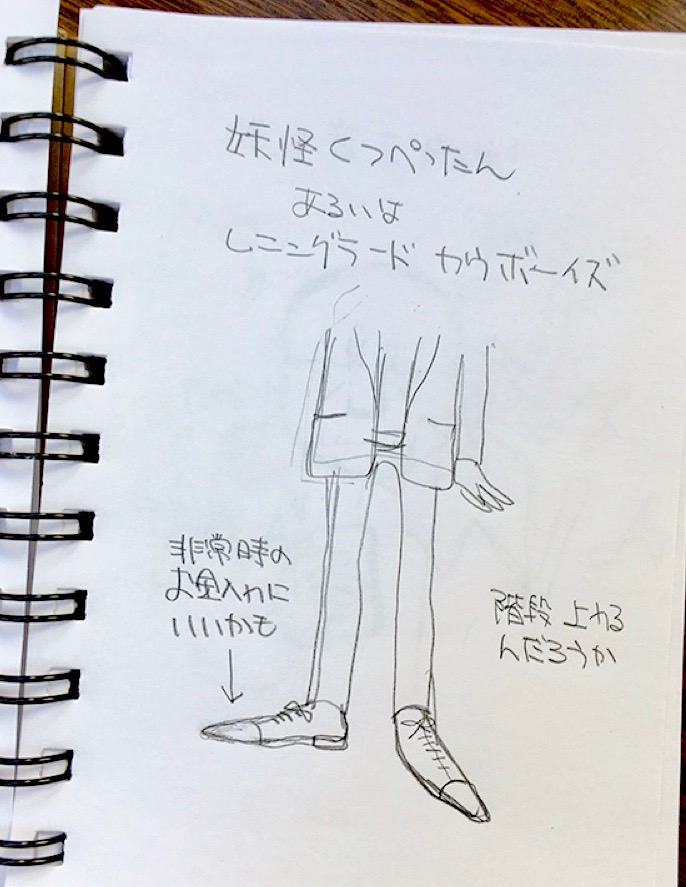 妖怪くつぺったん
あるいは
レニングラード カウボーイズ
非常時の
お金入れに
いいかも
階段 上れる
んだろうか